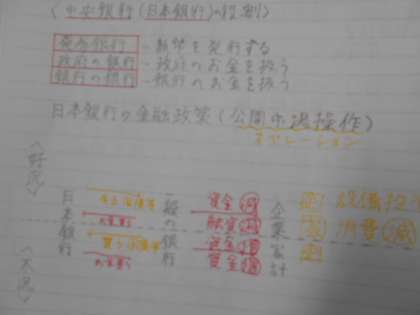 〈中央銀行(日本銀行)の役割〉
発券銀行 - 紙幣を発行する
政府の銀行 - 政府のお金を扱う
銀行の銀行 - 銀行のお金を扱う
日本銀行の金融政策(公開市場操作)
オペレーション
〈好況〉
日本銀行
売る 国債等
お金
買う 国債等
お金
一般の銀行
資金 減
融資 減
資金 増
企業 家計
企 設備投
家 消費 減
企
〈不況〉